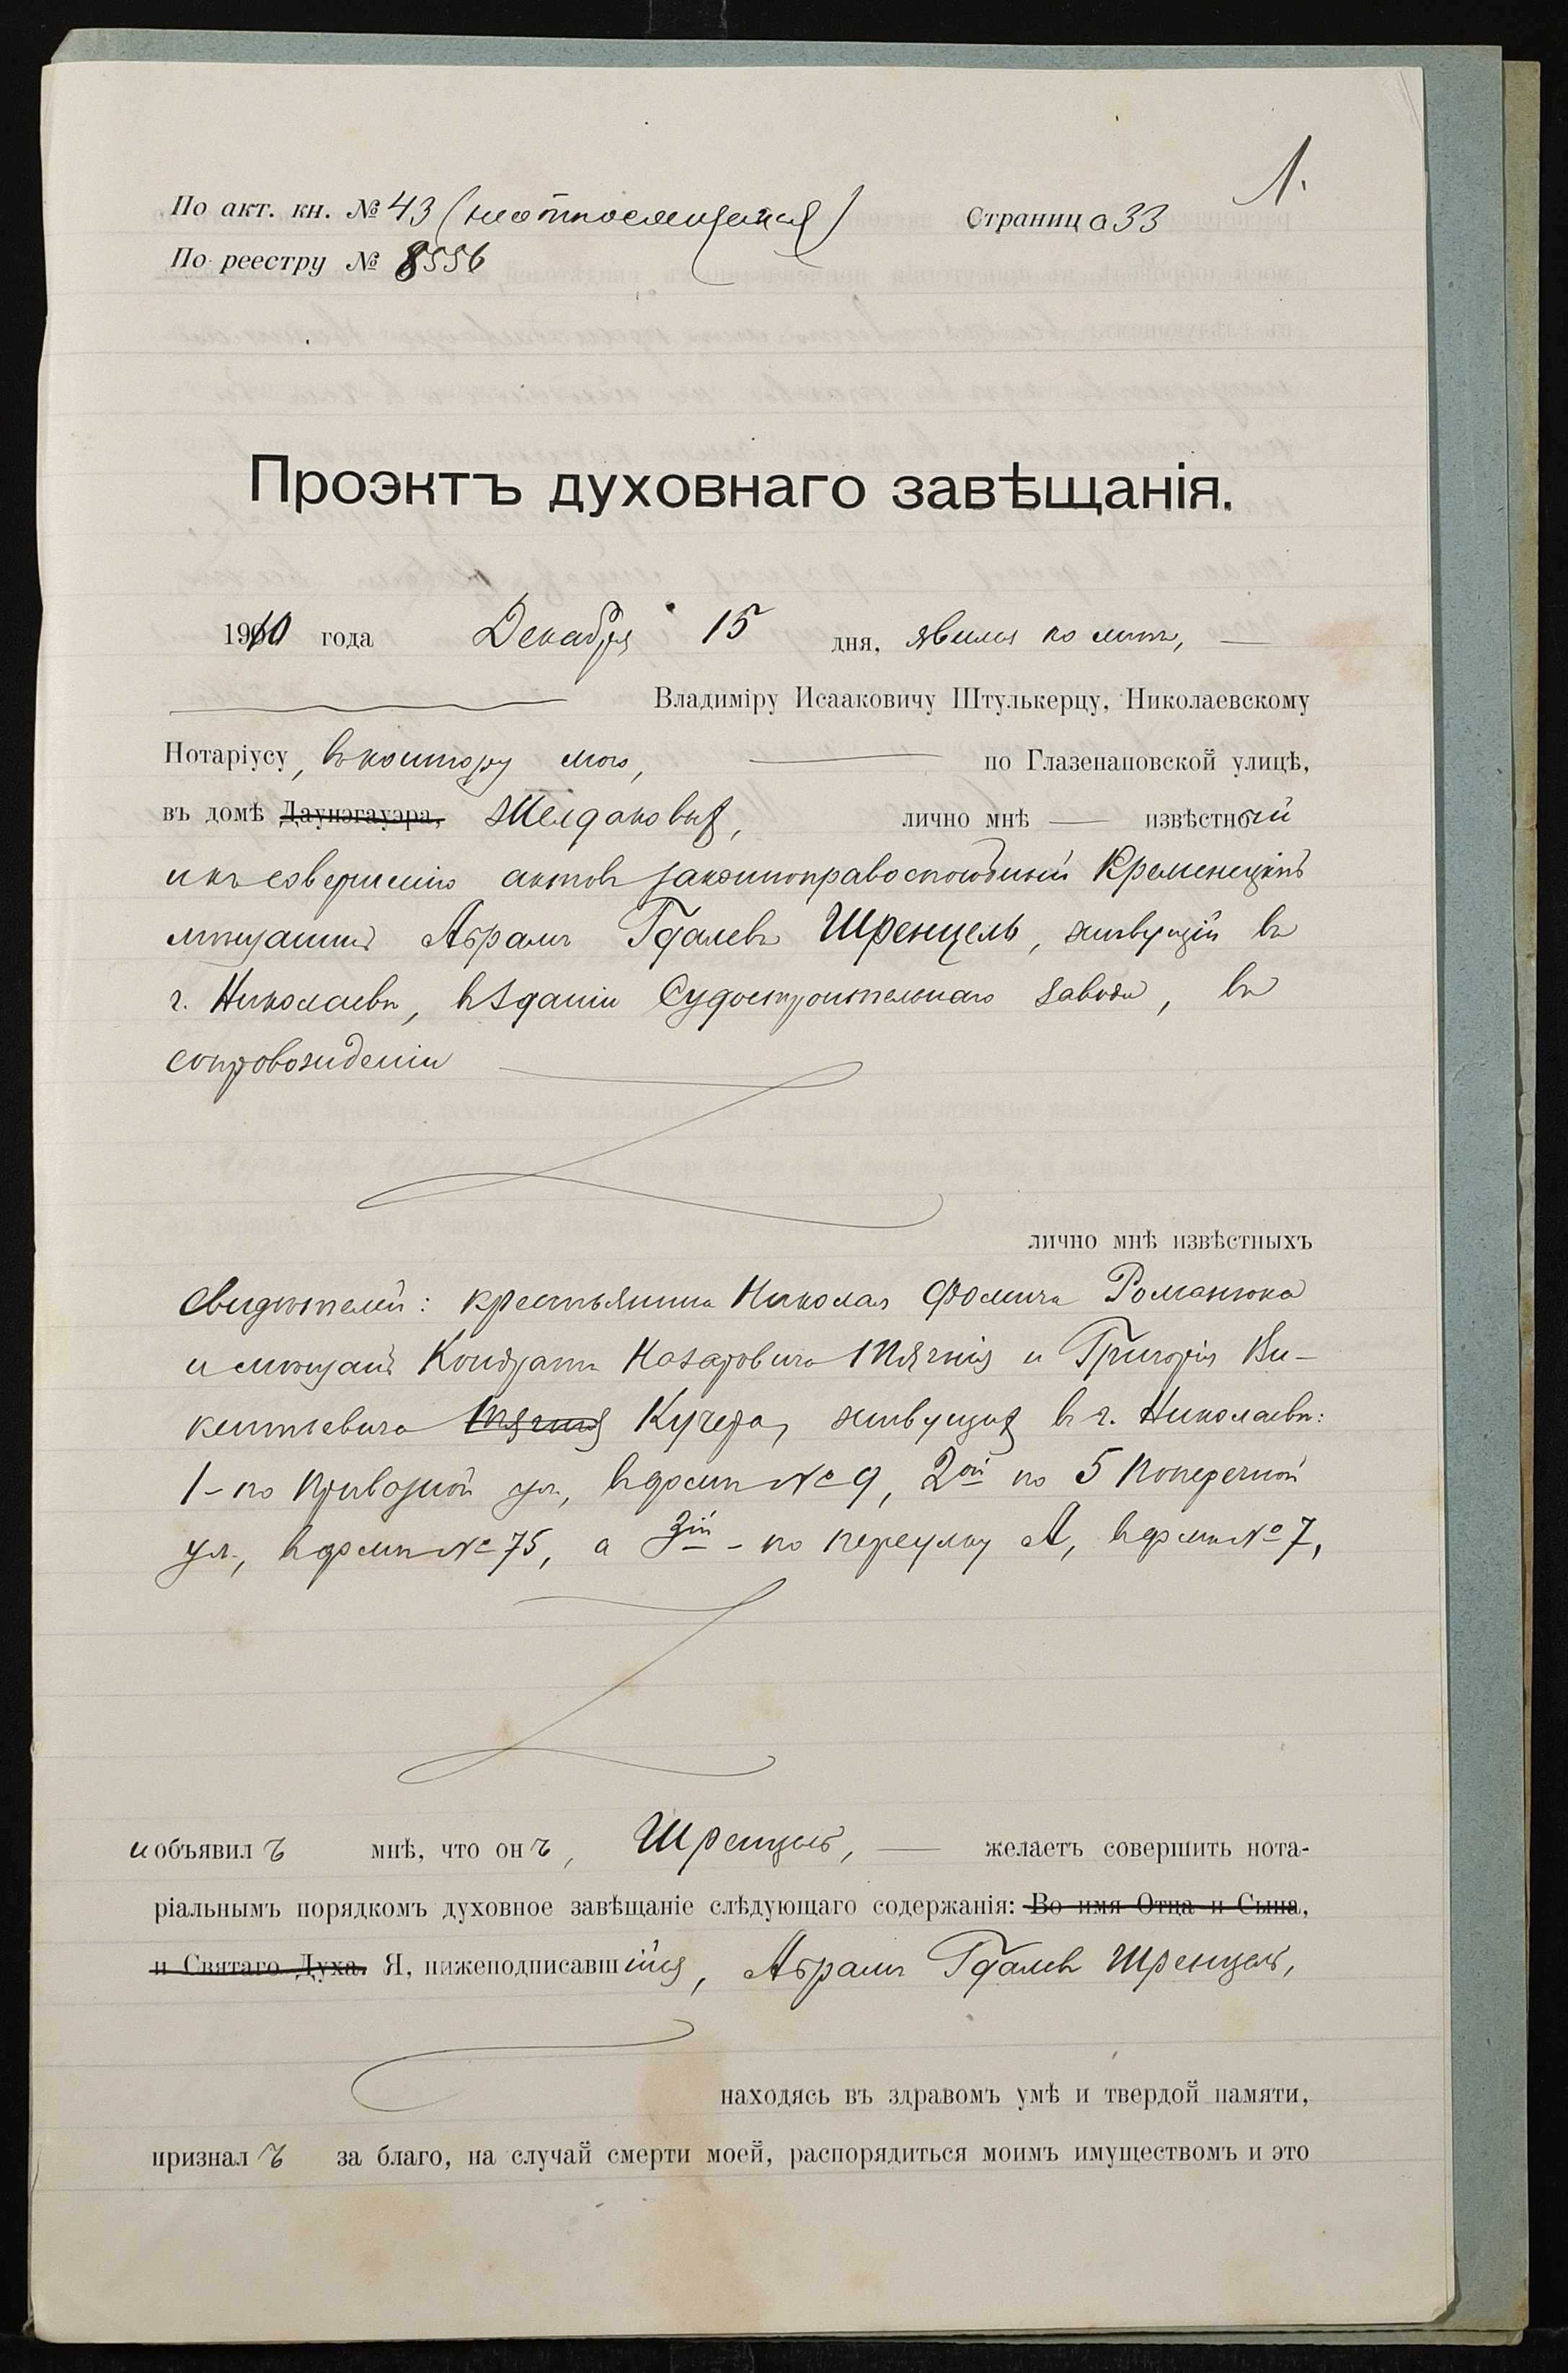 1.
По акт. кн. № 43 (неотносящихся) Страница 33
По реестру № 8556
Проэктъ духовнаго завѣщанія.
1910 года Декабря 15 дня, явился ко мнѣ,
Владиміру Исааковичу Штулькерцу, Николаевскому
Нотаріусу, въ контору мою, по Глазенаповской улицѣ,
въ домѣ Даунзгауэра, Желдаковыхъ, лично мнѣ извѣстный
и къ совершенію актовъ законноправоспособный Кременецкій
мѣщанинъ Абрамъ Гдалевъ Шренцель, живущій въ
г. Николаевѣ, въ зданіи Судостроительнаго завода, въ
сопровожденіи
лично мнѣ извѣстныхъ
свидѣтелей: крестьянина Николая Фомича Романюка
и мѣщанъ Кондрата Назаровича Тягнія и Григорія Ви-
кентьевича Тягнія Кучера, живущихъ въ г. Николаевѣ:
1-по Привозной ул., въ домѣ № 9, 2ой по 5 Поперечной
ул., въ домѣ № 75, а 3ій - по переулку А, въ домѣ № 7,
и объявилъ мнѣ, что онъ, Шренцель, желаетъ совершить нота-
ріальнымъ порядкомъ духовное завѣщаніе слѣдующаго содержанія: Во имя Отца и Сына,
и Святаго Духа. Я, нижеподписавшійся, Абрамъ Гдалевъ Шренцель,
находясь въ здравомъ умѣ и твердой памяти,
призналъ за благо, на случай смерти моей, распорядиться моимъ имуществомъ и это